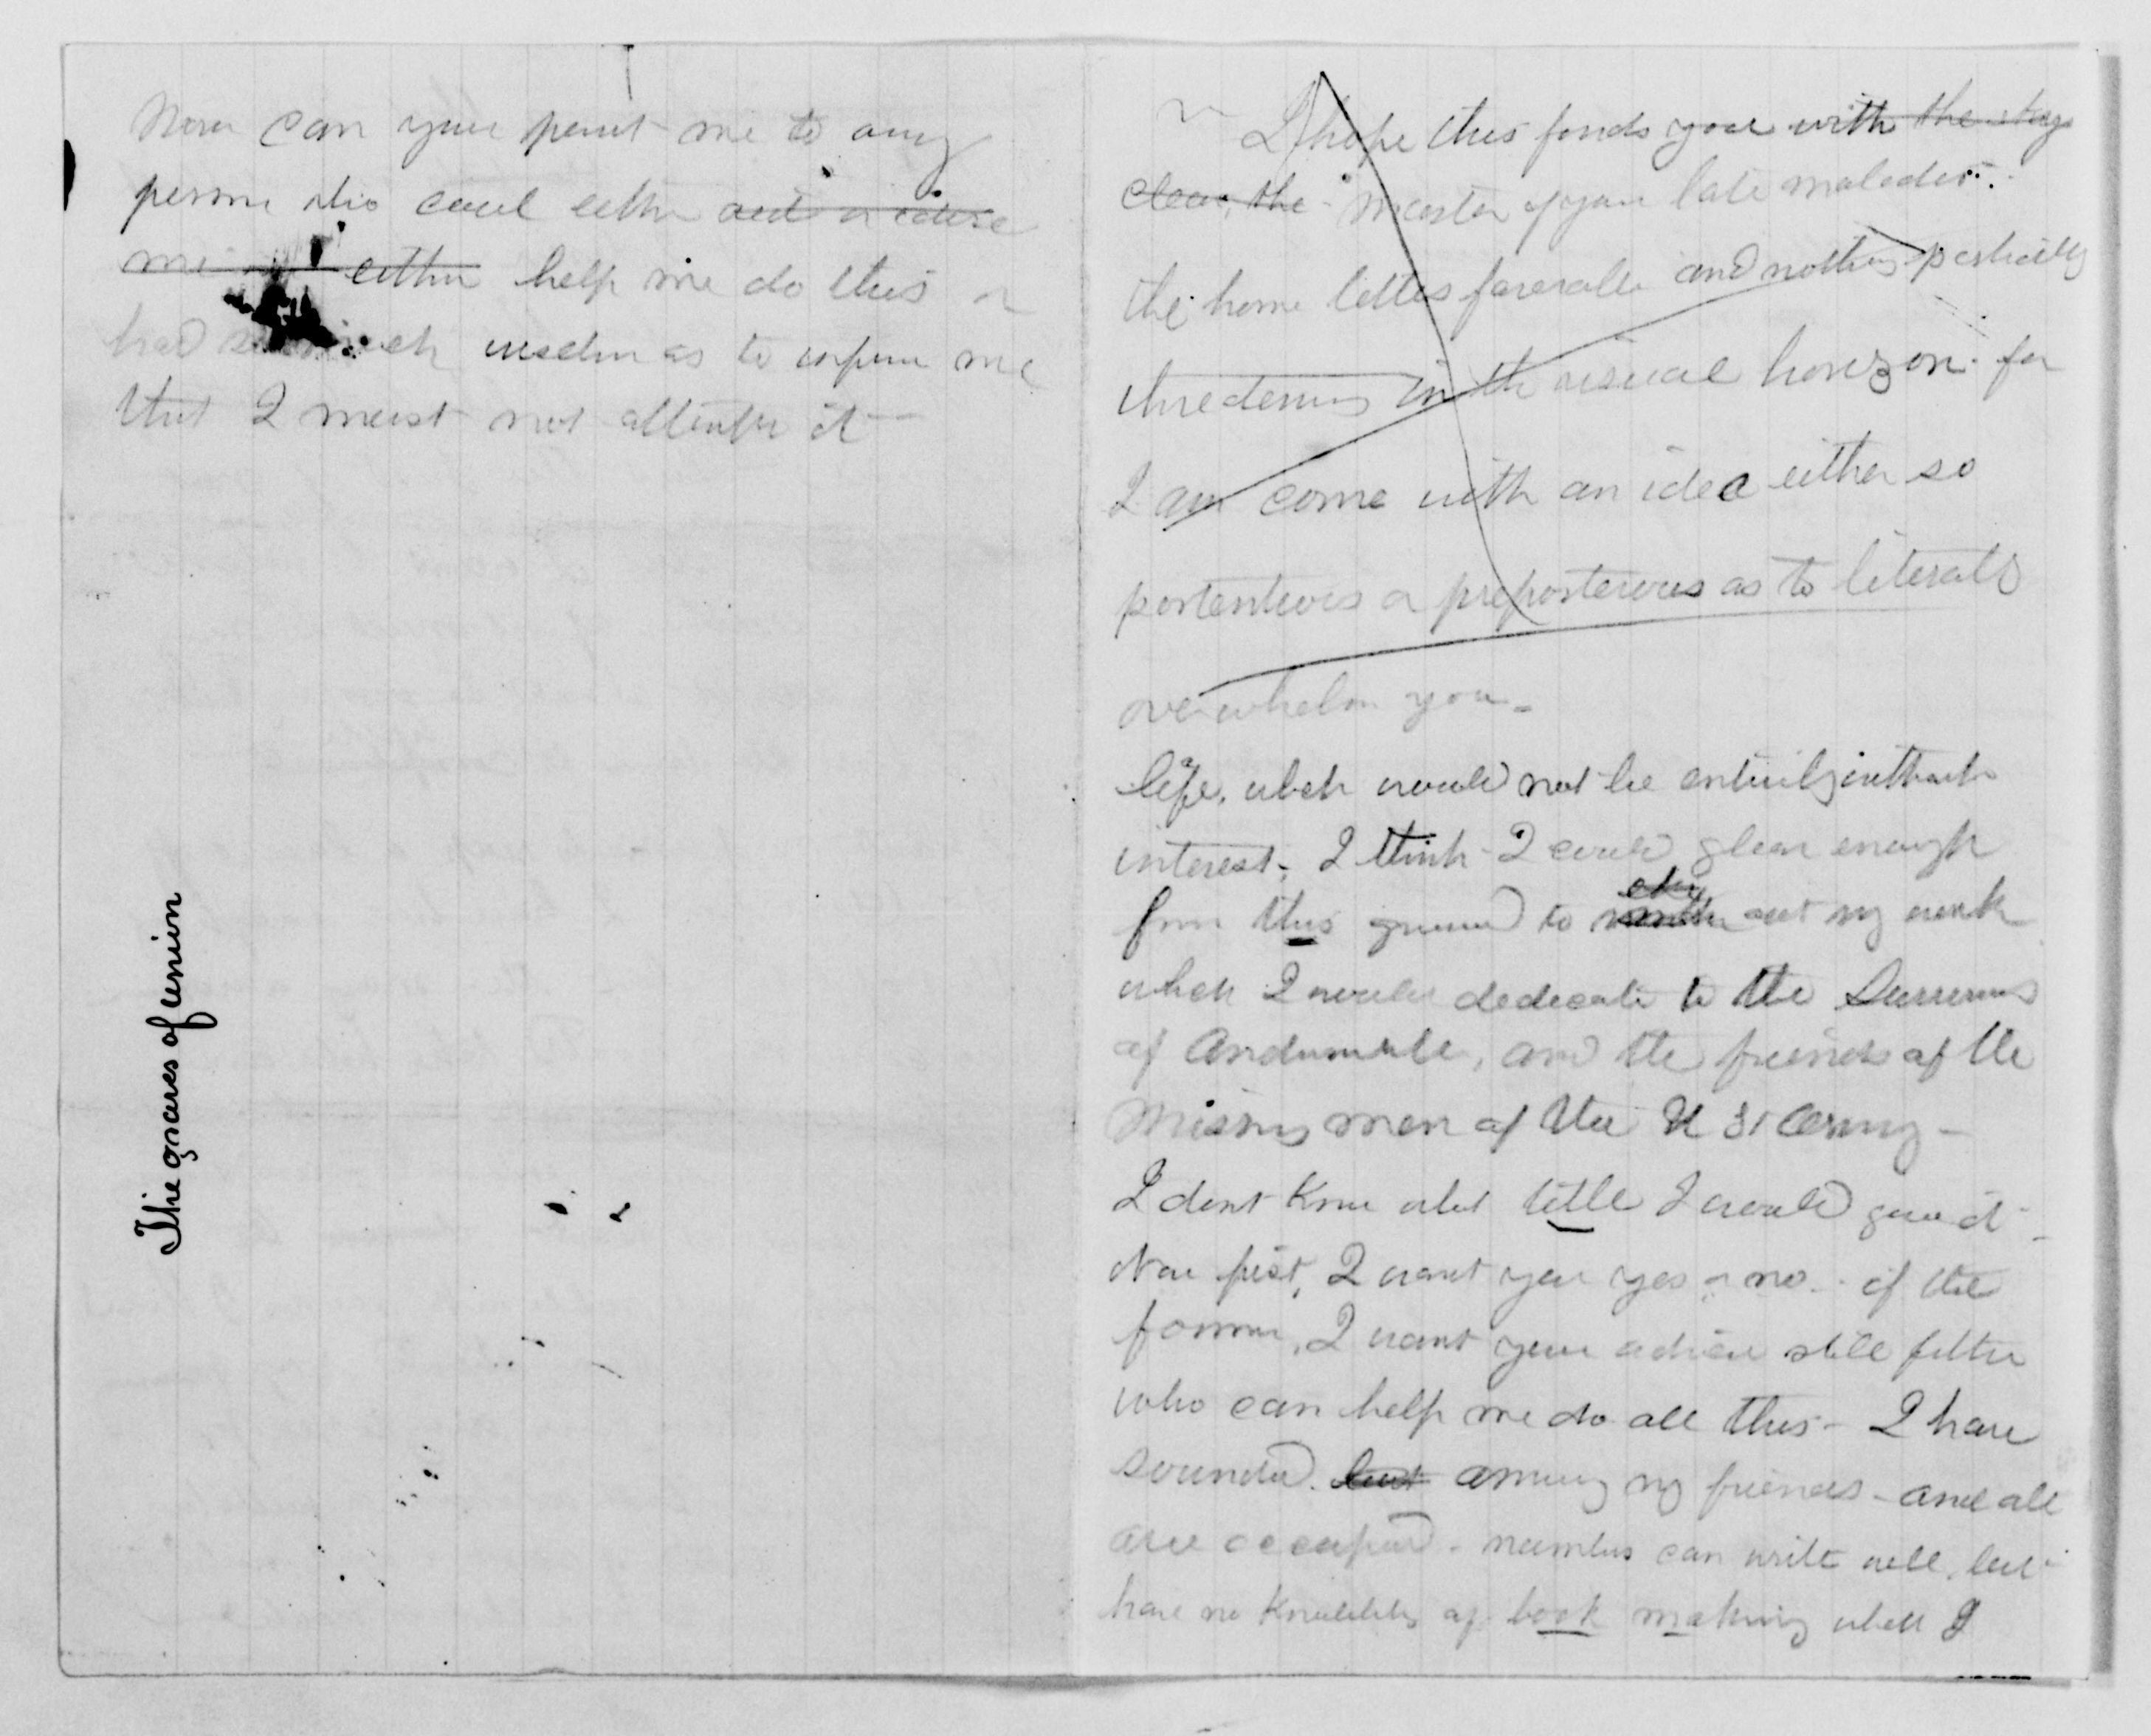 Now can you point me to any
person who could either aid or advise
me either help me do this or
had so much wisdom as to inform me
that I must not attempt it
The graves of union
I hope this finds you with the stage
clear, the master of your late maladies.
the home letters favorable and nothing particularly
thretening in the visual horizon. for
I am come with an idea either so
portentious or preposterous as to literally
overwhelm you.
life. which would not be entirely without
interest. I think I could glean enough
from this ground to eke out my work
which I would dedicate to the Survivors
of Andersonville, and the friends of the
Missing men of the U S Army -
I dont know what title I would give it -
Now first, I want your yes or no - if the
former, I want your advice still further
who can help me do all this - I have
sounded. but among my friends - and all
are occupied - numbers can write well, but
have no knowledge of book making which I